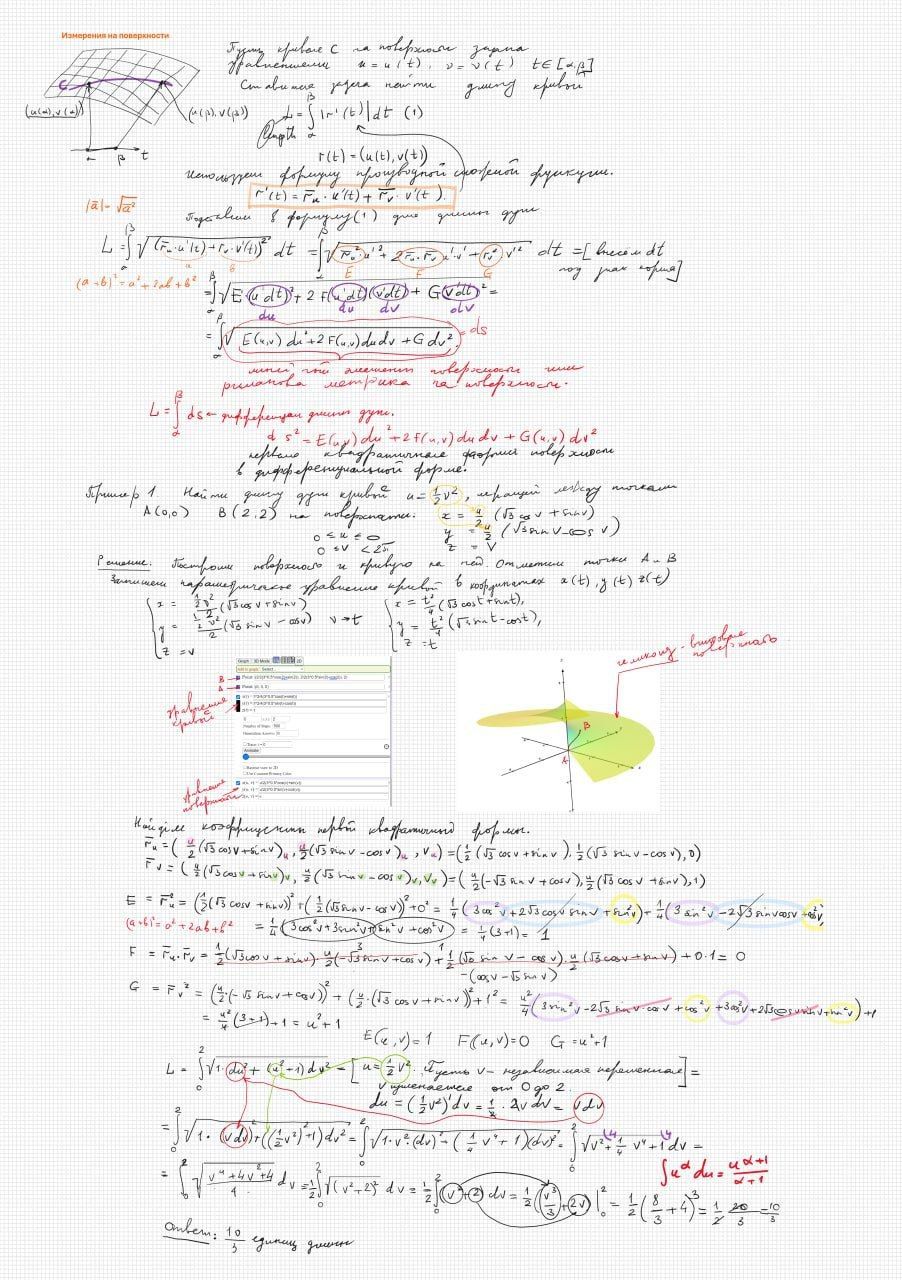 Измерения на поверхности
Пусть кривые C на поверхности задана
уравнениями u = u(t), v = v(t) t∈[α,β]
Ставится задача найти длину кривой
C
(u(α),v(α))
(u(β),v(β))
α β t
L = ∫ₐᵝ |r'(t)| dt (1)
length
r(t) = (u(t), v(t))
Используем формулу производной сложной функции.
r'(t) = r̅ᵤ · u'(t) + r̅ᵥ · v'(t).
|a̅| = √a̅²
Подставим в формулу (1) для длины дуги
L = ∫ √(r̅ᵤ·u'(t) + r̅ᵥ·v'(t))² dt = ∫ √r̅ᵤ²·u'² + 2r̅ᵤ·r̅ᵥ·u'·v' + r̅ᵥ²·v'² dt = [внесём dt
под знак корня]
a b E F G
(a+b)² = a² + 2ab + b²
= ∫ √E·(u'dt)² + 2F(u'dt)(v'dt) + G(v'dt)² =
du du dv dv
= ∫ √E(u,v) du² + 2F(u,v)dudv + G dv² = ds
линейный элемент поверхности или
риманова метрика на поверхности.
L = ∫ ds ← дифференциал длины дуги.
ds² = E(u,v) du² + 2F(u,v) du dv + G(u,v) dv²
первая квадратичная форма поверхности
в дифференциальной форме.
Пример 1. Найти длину дуги кривой u = ½v², лежащий между точками
A(0,0) B(2,2) на поверхности: x = u/2 (√3 cos v + sin v)
y = u/2 (√3 sin v − cos v)
z = v
0 ≤ v < 2π
Решение: Построим поверхность и кривую на ней. Отметим точки A и B
Запишем параметрическое уравнение кривой в координатах x(t), y(t) z(t)
x = ½v²/2 (√3 cos v + sin v)
y = ½v²/2 (√3 sin v − cos v) v → t
z = v
x = t²/4 (√3 cos t + sin t),
y = t²/4 (√3 sin t − cos t),
z = t
геликоид - винтовая поверхность
B
A
уравнение кривой
уравнение поверхности
Graph 3D Mode 2D
Add to graph: Select...
A
B
Найдём коэффициенты первой квадратичной формы.
r̅ᵤ = (u/2(√3 cos v + sin v)ᵤ, u/2(√3 sin v − cos v)ᵤ, vᵤ) = (½(√3 cos v + sin v), ½(√3 sin v − cos v), 0)
r̅ᵥ = (u/2(√3 cos v + sin v)ᵥ, u/2(√3 sin v − cos v)ᵥ, vᵥ) = (u/2(−√3 sin v + cos v), u/2(√3 cos v + sin v), 1)
E = r̅ᵤ² = (½(√3 cos v + sin v))² + (½(√3 sin v − cos v))² + 0² = ¼(3cos²v + 2√3 cos v sin v + sin²v) + ¼(3 sin²v − 2√3 sin v cos v + cos²v)
(a+b)² = a² + 2ab + b²
= ¼(3cos²v + 3sin²v + sin²v + cos²v) = ¼(3+1) = 1
F = r̅ᵤ·r̅ᵥ = ½(√3 cos v + sin v)·u/2(−√3 sin v + cos v) + ½(√3 sin v − cos v)·u/2(√3 cos v + sin v) + 0·1 = 0
−(cos v − √3 sin v)
G = r̅ᵥ² = (u/2·(−√3 sin v + cos v))² + (u/2·(√3 cos v + sin v))² + 1² = u²/4(3 sin²v − 2√3 sin v cos v + cos²v + 3cos²v + 2√3 cos v sin v + sin²v) + 1
= u²/4(3+1) + 1 = u² + 1
E(u,v) = 1 F(u,v) = 0 G = u² + 1
L = ∫₀² √1·du² + (u²+1) dv² = [u = ½v². Пусть v − независимая переменная] =
v изменяется от 0 до 2.
du = (½v²)' dv = ½·2v dv = v dv
= ∫₀² √1·(v dv)² + ((½v²)² + 1) dv² = ∫₀² √1·v²·(dv)² + (¼v⁴ + 1)(dv)² = ∫₀² √v² + ¼v⁴ + 1 dv =
∫u^α du = u^(α+1)/(α+1)
= ∫₀² √(v⁴+4v²+4)/4 dv = ½∫₀² √(v²+2)² dv = ½∫₀² (v²+2) dv = ½(v³/3 + 2v)|₀² = ½(8/3 + 4) = ½ 20/3 = 10/3
Ответ: 10/3 единиц длины